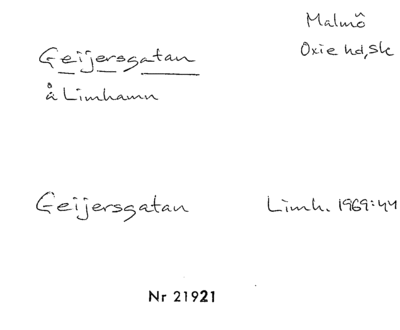 Malmö
Geijersgatan
Oxie hd, Sk
å Limhamn
Geijersgatan
Limh. 1969:44
Nr 21921